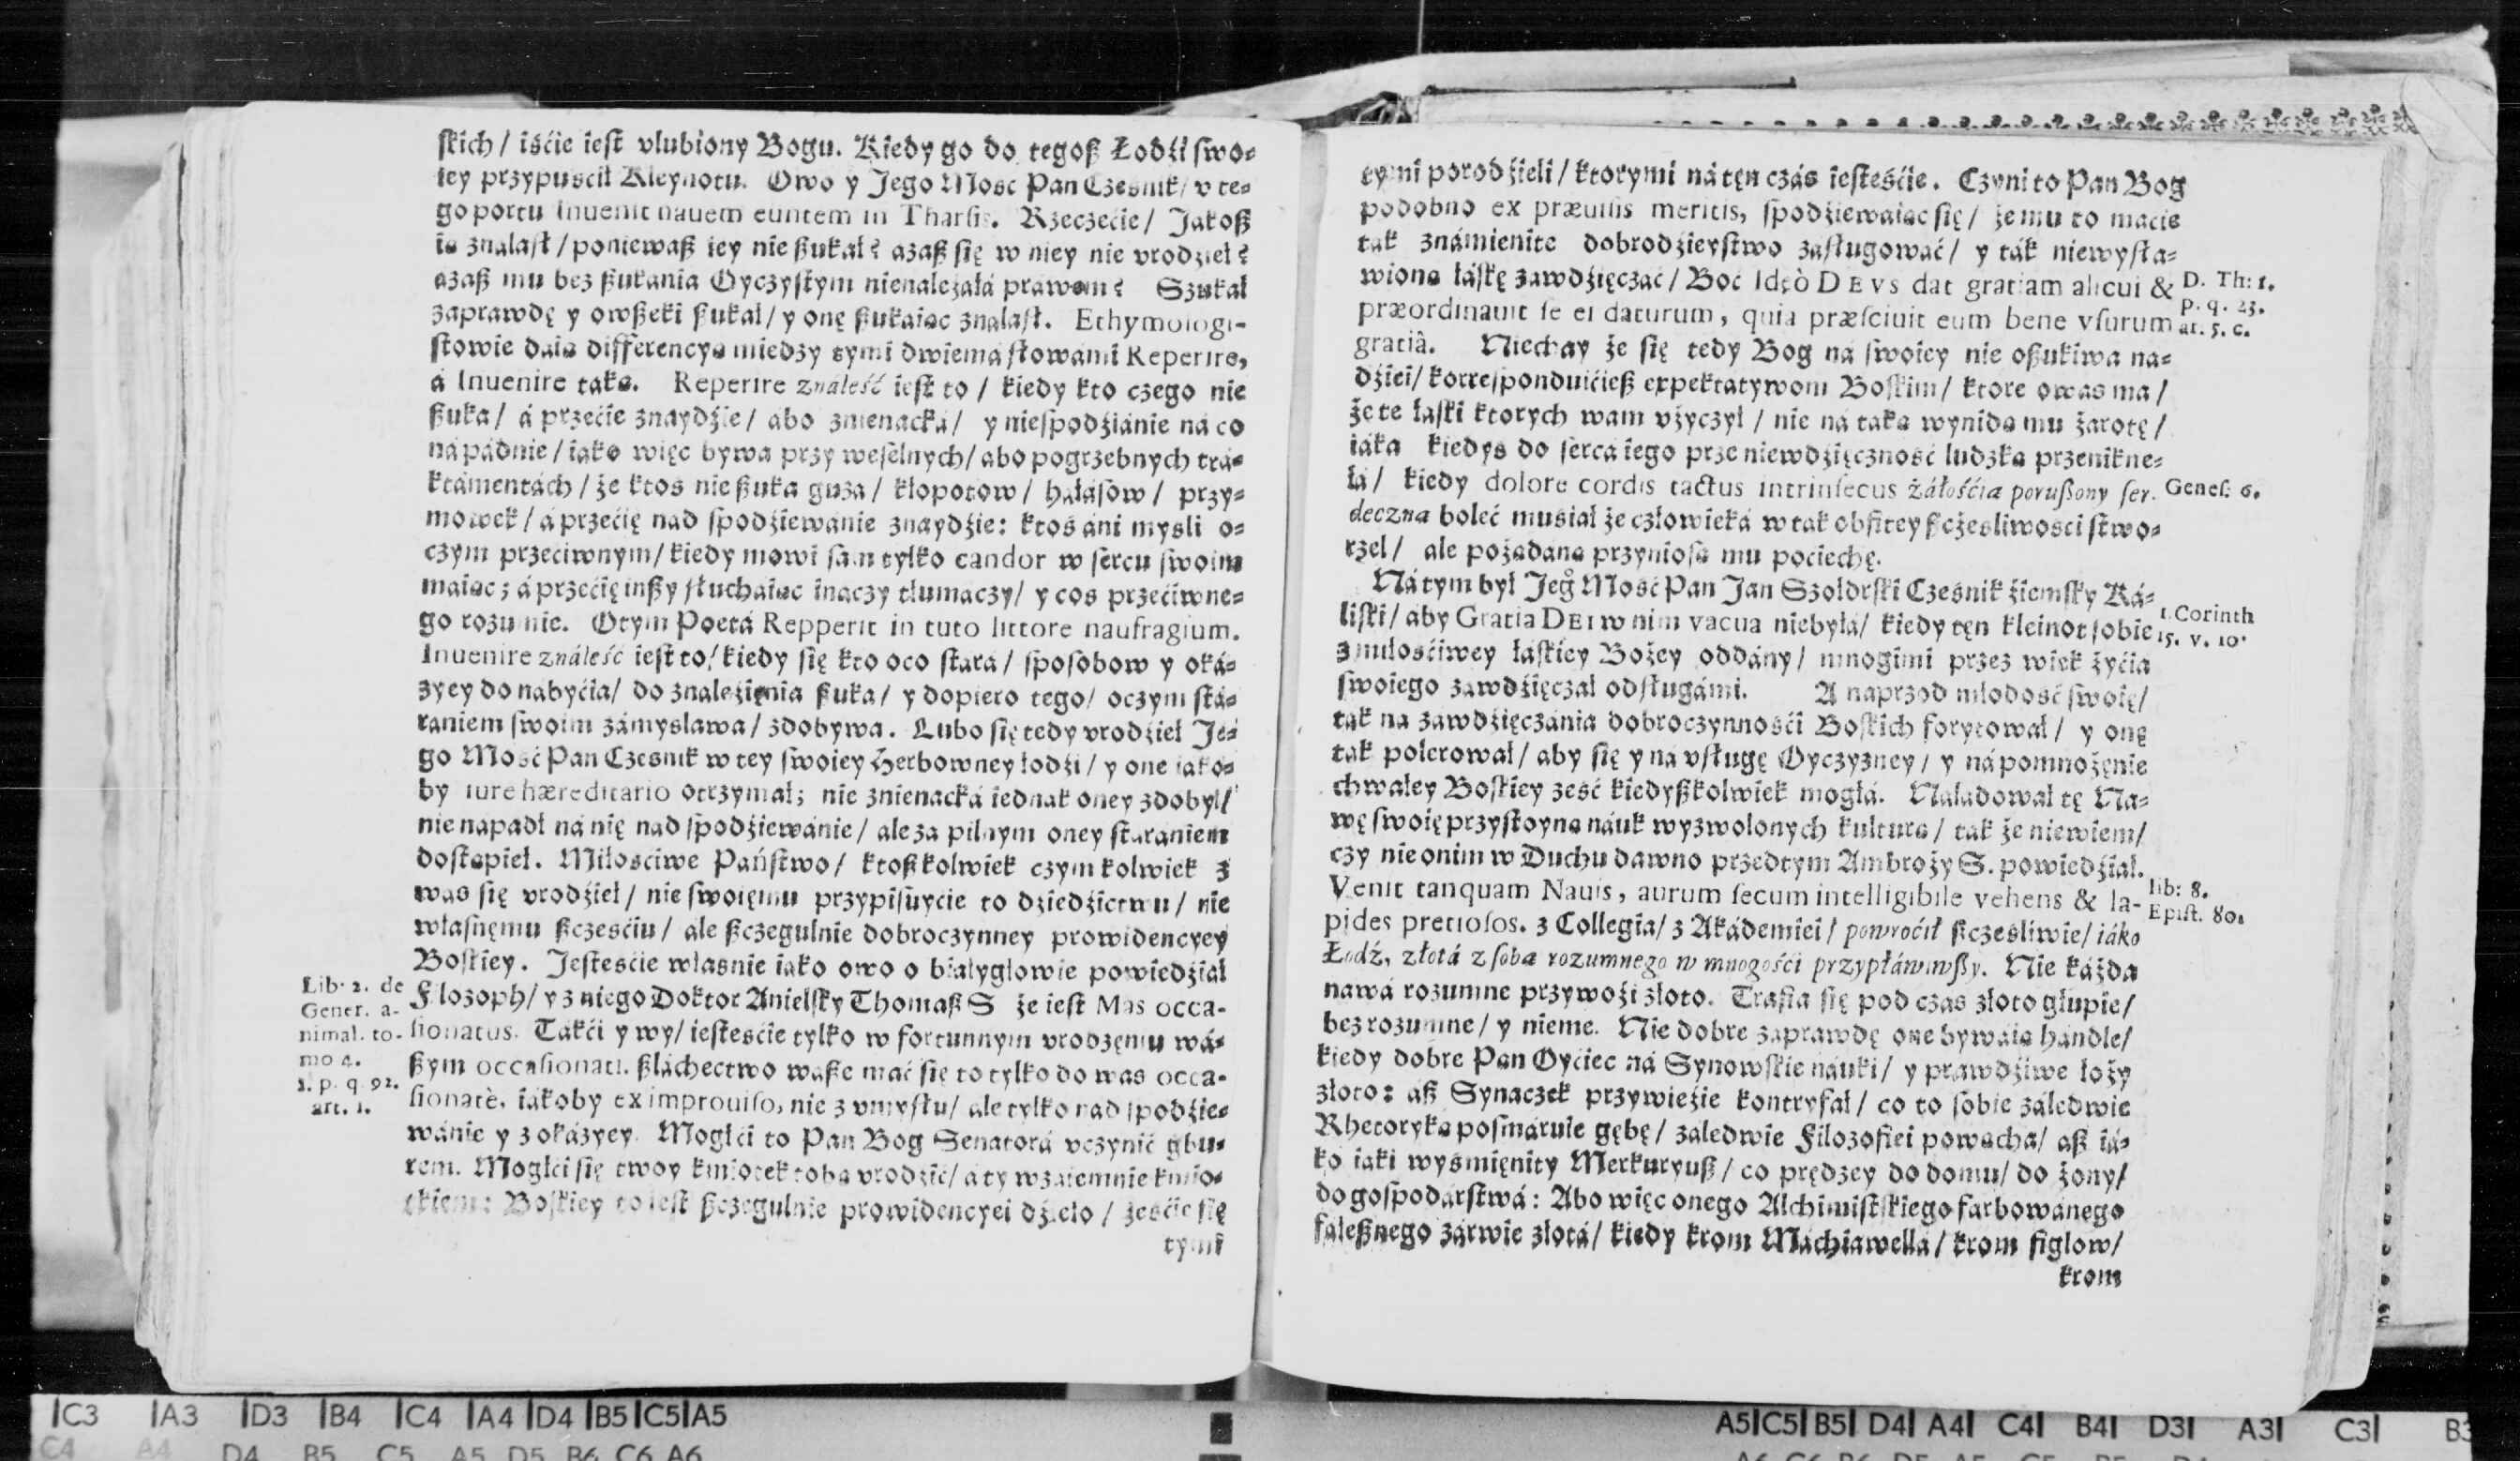 skich/ iśćie iest vlubiony Bogu. Kiedy go do tegoß Łodźi swo-
iey przypuscił Kleynotu. Owo y Jego Mosc Pan Czesnik/ v te-
go portu Inuenit nauem euntem in Tharsis. Rzeczecie/ Jakoß
ią znalasł/ poniewaß iey nie ßukał? azaß się w niey nie vrodzieł?
azaß mu bez ßukania Oyczystym nienależałá prawem? Szukał
zaprawdę y owßeki ßukał/ y onę ßukaiąc znalasł. Ethymologi-
stowie daią differencyą miedzy tymi dwiemá słowámi Reperire,
á Inuenire taką. Reperireználeść iest to / kiedy kto czego nie
ßuka/ á przećie znaydźie/ abo znienacká/ y niespodźiánie ná co
nápádnie/ iako więc bywa przy weselnych/ abo pogrzebnych trá-
ktámentách/ że ktos nie ßuka guza/ kłopotow/ háłásow/ przy-
mowek/ á przećię nad spodźiewánie znaydźie: ktos áni mysli o-
czym przeciwnym/ kiedy mowi sam tylko candor w sercu swoim
maiąc; á przećię inßy słuchaiąc ináczy tłumaczy/ y cos przećiwne-
go rozumie. Otym Poetá Repperit in tuto littore naufragium.
Inuenire ználeść iest to/ kiedy się kto oco stára/ sposobow y oká-
zyey do nabyćia/ do znaleźięnia ßuka/ y dopiero tego/ oczym stá-
raniem swoim zámyslawa/ zdobywa. Lubo się tedy vrodźieł Je-
go Mość Pan Czesnik w tey swoiey Herbowney łodźi/ y one iako-
by iure hæreditario otrzymał; nie znienacká iednak oney zdobył/
nie napadł ná nię nad spodźiewánie/ ale za pilnym oney stáraniem
dostąpieł. Miłosciwe Páństwo/ ktoßkolwiek czym kolwiek z
was się vrodźieł/ nie swoięmu przypisuycie to dźiedźictwu/ nie
własnęmu ßczesćiu/ ale ßczegulnie dobroczynney prowidencyey
Boskiey. Jestesćie własnie iako owo o białygłowie powiedźiał
Filozoph/ y z niego Doktor Anielsky Thomaß S że iest Mas occa-
sionatus. Takći y wy/ iestesćie tylko w fortunnym vrodzęniu wá-
ßym occasionati. ßláchectwo waße mać się to tylko do was occa-
sionatè. iakoby ex improuiso, nie z vmysłu/ ale tylko nad spodźie-
wánie y z okázyey. Mogłći to Pan Bog Senatorá vczynić gbu-
rem. Mogłći się twoy kmiotek tobą vrodźić/ á ty wzaiemnie kmio-
tkiem: Boskiey to iest ßczegulnie prowidencyei dźieło / żesćie się
tymi
Lib. 2. de
Gener. a-
nimal. to-
mo 4.
1. p. q. 92.
art. 1.
tymi porodźieli/ ktorymi ná tęn czás iestesćie. Czyni to Pan Bog
podobno ex præuisis meritis, spodźiewaiąc się/ że mu to macie
tak známienite dobrodźieystwo zasługować/ y ták niewysła-
wioną łáskę zawdźięczać/ Boć Ideò DEVS dat gratiam alicui &
præordinauit se ei daturum, quia præsciuit eum bene vsurum
gratiâ. Niechay że się tedy Bog na swoiey nie oßukiwa na-
dźiei/ korresponduićieß expektatywom Boskim/ ktore o was ma/
że te łaski ktorych wam vżyczył/ nie ná taką wynidą mu żarotę/
iáka kiedys do serca iego prze niewdźięczność ludzka przenikne-
łá/ kiedy dolore cordis tactus intrinsecus żáłością porußony ser-
deczną boleć musiał że człowieká w tak obfitey ßczęsliwosci stwo-
rzel/ ale pożądaną przyniosą mu pociechę.
Ná tym był Jego Mosć Pan Jan Szołdrski Czesnik źiemsky Ká-
liski/ aby Gratia DEI w nim vacua niebyłá/ kiedy tęn kleinot sobie
z miłosćiwey łáskiey Bożey oddány/ mnogimi przez wiek żyćia
swoiego zawdźięczał odsługámi. A naprzod młodość swoię/
tak na zawdźięczánia dobroczynnośći Boskich forytował/ y onę
tak polerował/ aby się y na vsługę Oyczyzney/ y ná pomnożęnie
chwałey Boskiey zesć kiedyßkolwiek mogłá. Naładował tę Na-
wę swoię przystoyną náuk wyzwolonych kulturą/ tak że niewiem/
czy nie onim w Duchu dawno przedtym Ambroży S. powiedźiał.
Venit tanquam Nauis, aurum secum intelligibile vehens & la-
pides pretiosos. z Collegia/ z Akádemiei/ powroćił ßczesliwie/ iáko
Łodź, złotá z sobą rozumnego w mnogośći przypłáwiwßy. Nie káżda
nawá rozumne przywoźi złoto. Trafia się pod czas złoto głupie/
bez rozumne/ y nieme. Nie dobre zaprawdę one bywaią hándle/
kiedy dobre Pan Oyćiec ná Synowskie náuki/ y prawdźiwe łoży
złoto: aß Synaczek przywieźie kontryfał/ co to sobie záledwie
Rhetoryką posmáruie gębę/ zaledwie Filozofiei powącha/ aß iá-
ko iaki wysmięnity Merkuryuß/ co prędzey do domu/ do żony/
do gospodarstwá: Abo więc onego Alchimistskiego farbowánego
faleßnego zárwie złotá/ kiedy krom Machiawella/ krom figlow/
krom
D. Th: 1.
p. q. 23.
ar. 5. c.
Genes: 6.
1. Corinth
15. v. 10.
lib: 8.
Epist. 80.